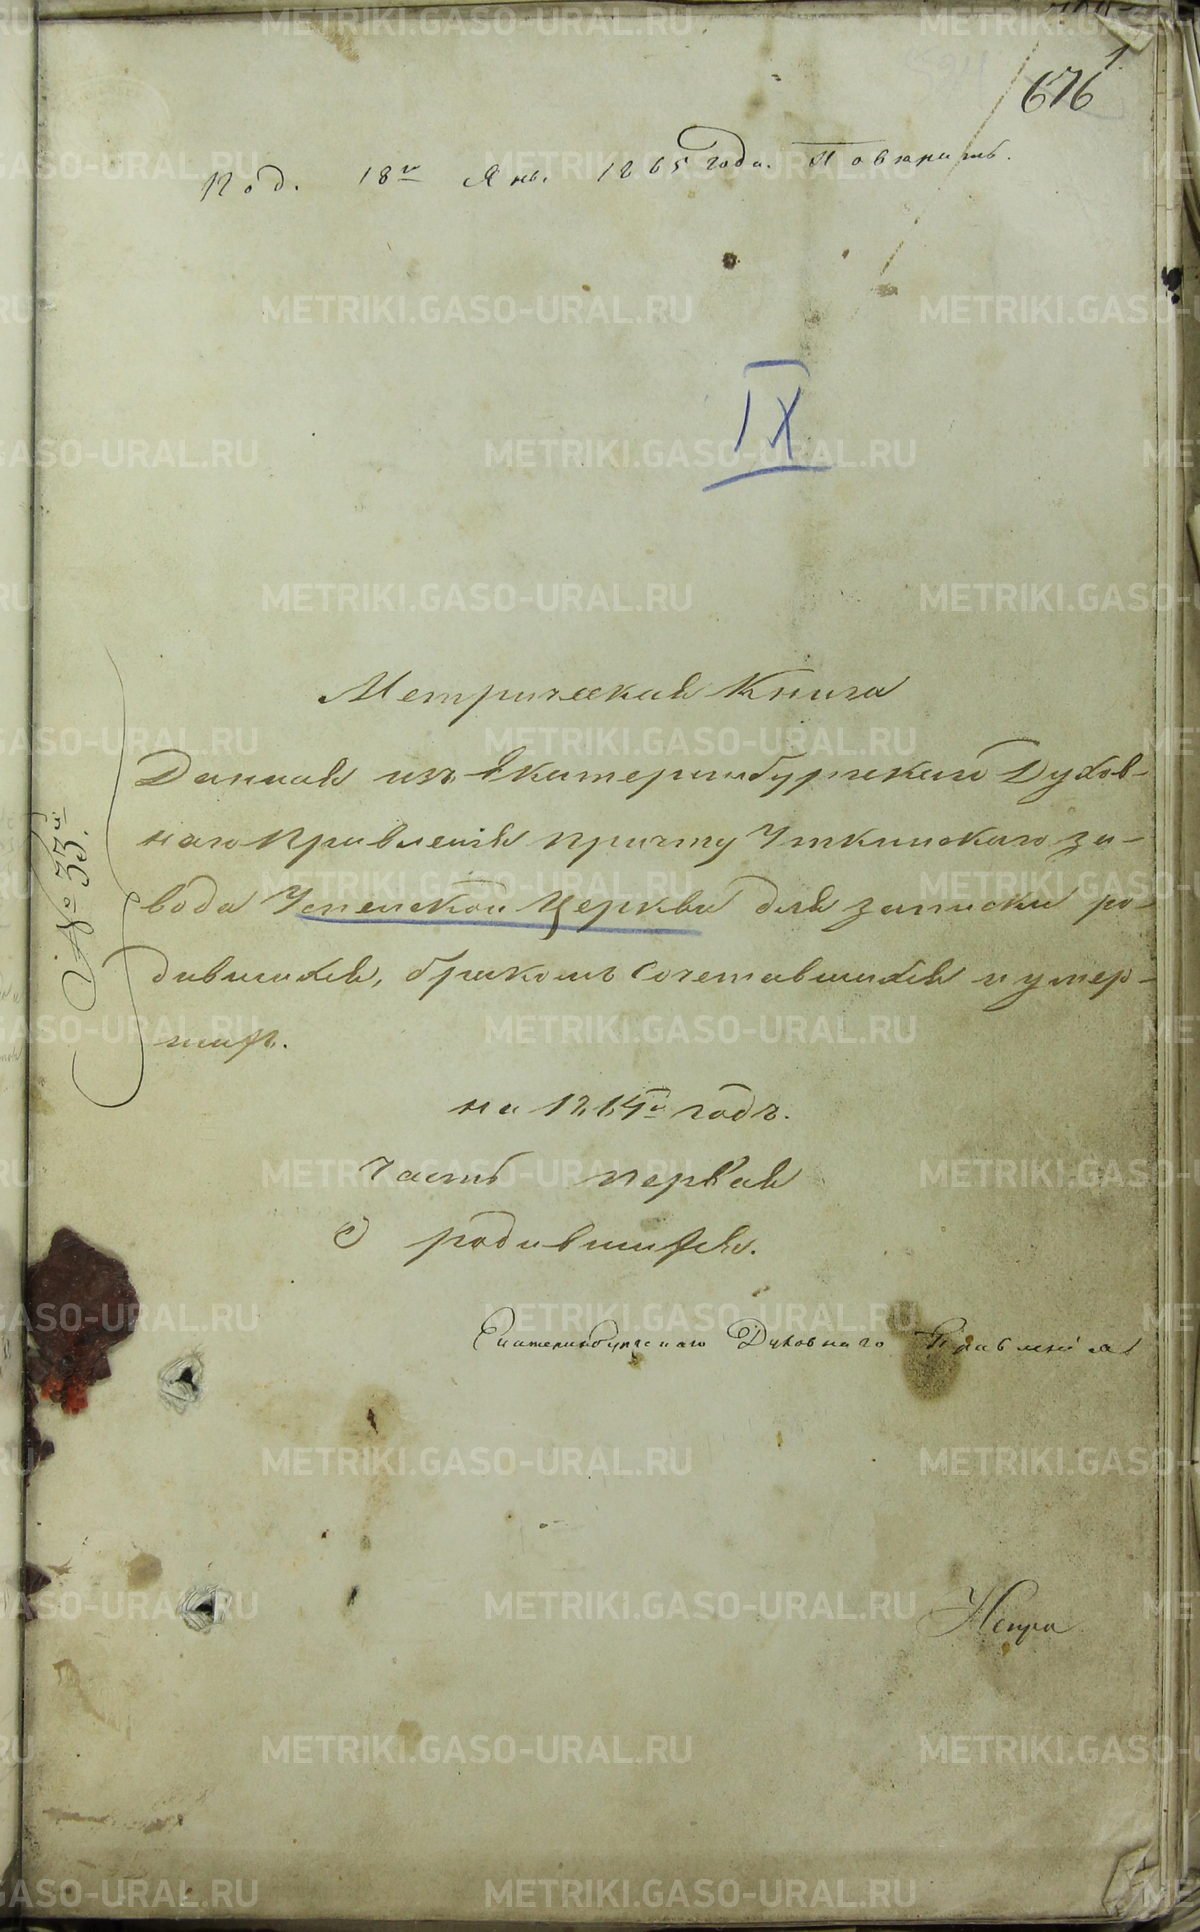 1.
676
Под. 18го Янв. 1865 года. Поверить.
IX
Метрическая Книга
Данная изъ Екатеринбургскаго Духов-
наго Правленія причту Уткинскаго за-
вода Успенской Церкви для записки ро-
дившихся, бракомъ сочетавшихся и умер-
шихъ.
№ 33й
на 1864й годъ.
Часть первая
О родившихся.
Екатеринбургскаго Духовнаго Правленія
METRIKI.GASO-URAL.RU